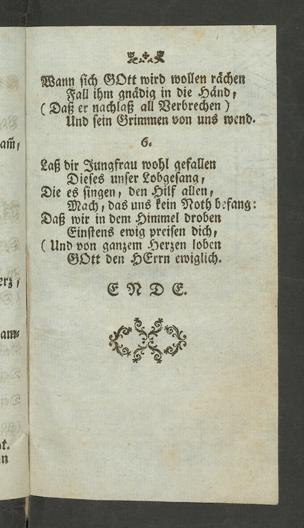 Wann sich GOtt wird wollen rächen
Fall ihm gnädig in die Händ,
( Daß er nachlaß all Verbrechen )
Und sein Grimmen von uns wend.
6.
Laß dir Jungfrau wohl gefallen
Dieses unser Lobgesang,
Die es singen, den Hilf allen,
Mach, das uns kein Noth befang:
Daß wir in dem Himmel droben
Einstens ewig preisen dich,
( Und von ganzem Herzen loben
GOtt den HErrn ewiglich.
E N D E.